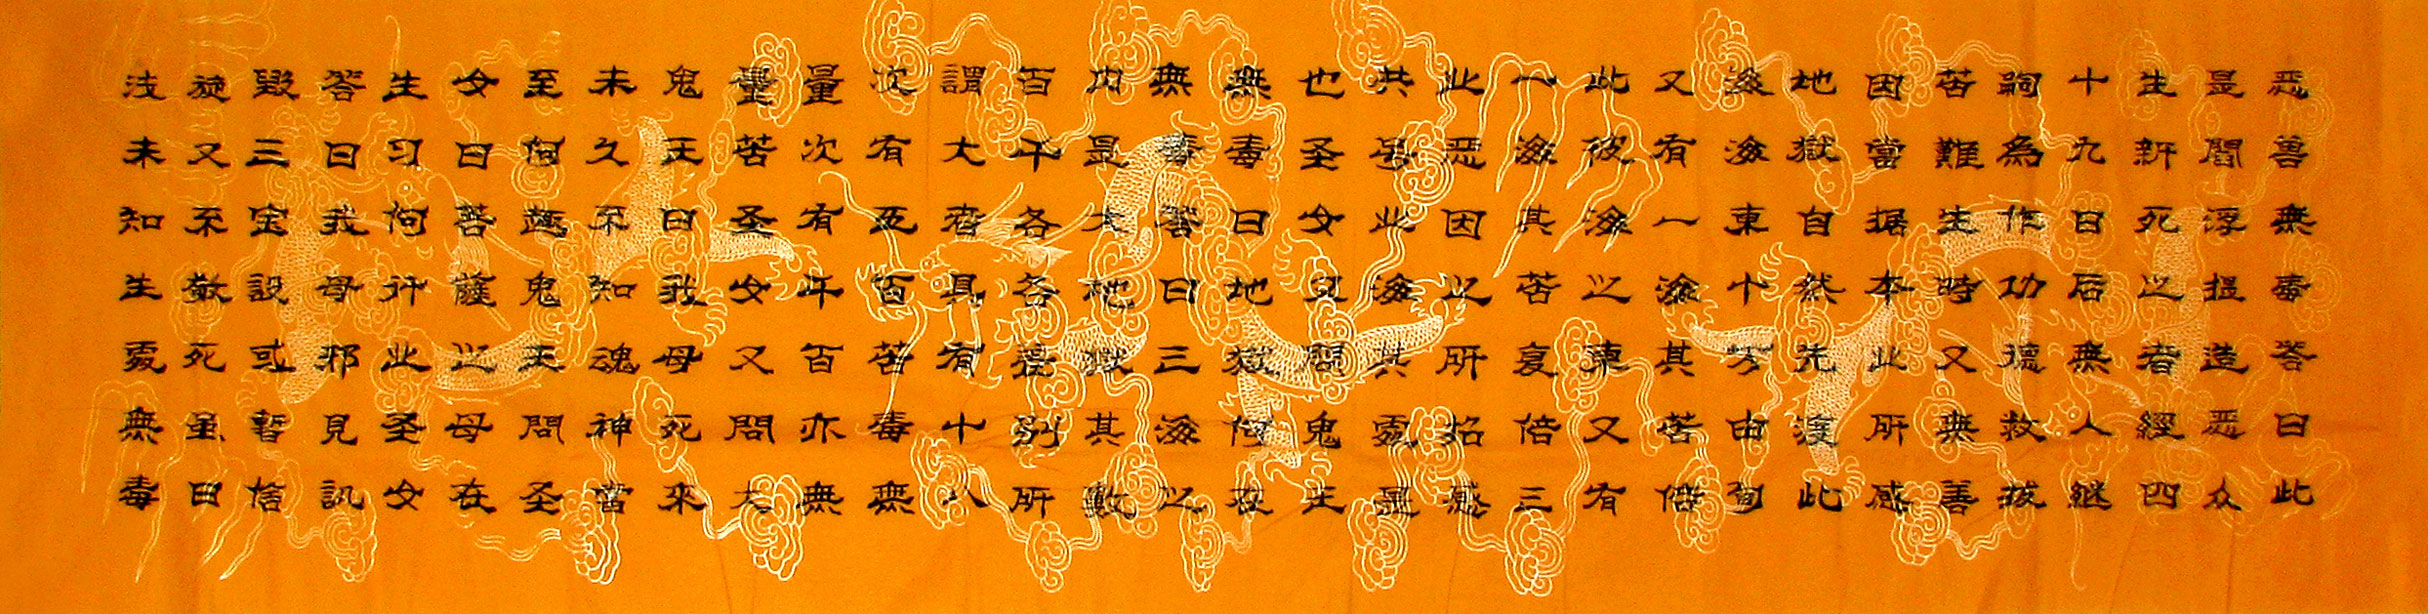 恶兽無毒答曰此
是閻浮提造恶众
生新死之者經四
十九日后無人継
嗣為作功德救拔
苦難生時又無善
因當据本此所感
地獄自然先渡此
海海東十万由旬
又有一海其苦倍
此彼海之東又有
一海其苦复倍三
此恶因之所招感
共号此海其處是
也圣女又問鬼王
無毒曰地獄何在
無毒答曰三海以
内是大地獄其數
百千各各差别所
謂大者具有十八
次有五百苦毒無
量次有千百亦無
量苦圣女又問大
鬼王曰我母死來
未久不知魂神當
至何趣鬼王問圣
女曰菩薩之母在
生习何行此圣女
答曰我母邪見訊
毀三宝設或暫信
旋又不敬死虽日
浅未知生處無毒